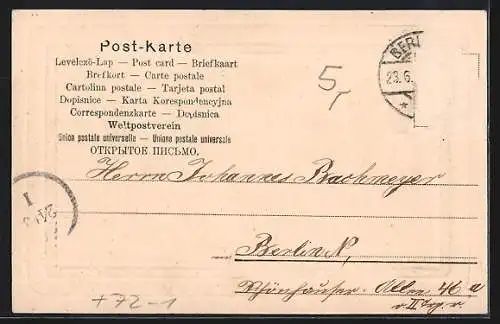 Post-Karte
Levelező-Lap — Post card — Briefkaart
Brefkort — Carte postale
Cartolina postale — Tarjeta postal
Dopisnice — Karta Korespondencyjna
Correspondenzkarte — Dopisnica
Weltpostverein
Union postale universelle — Unione postale universale
ОТКРЫТОЕ ПИСЬМО.
5
BERL
23.6.
*
1
Herrn Johannes Bachmeyer
Berlin N,
Schönhauser-Allee 46 a
v. II Trp. r.
+72-1